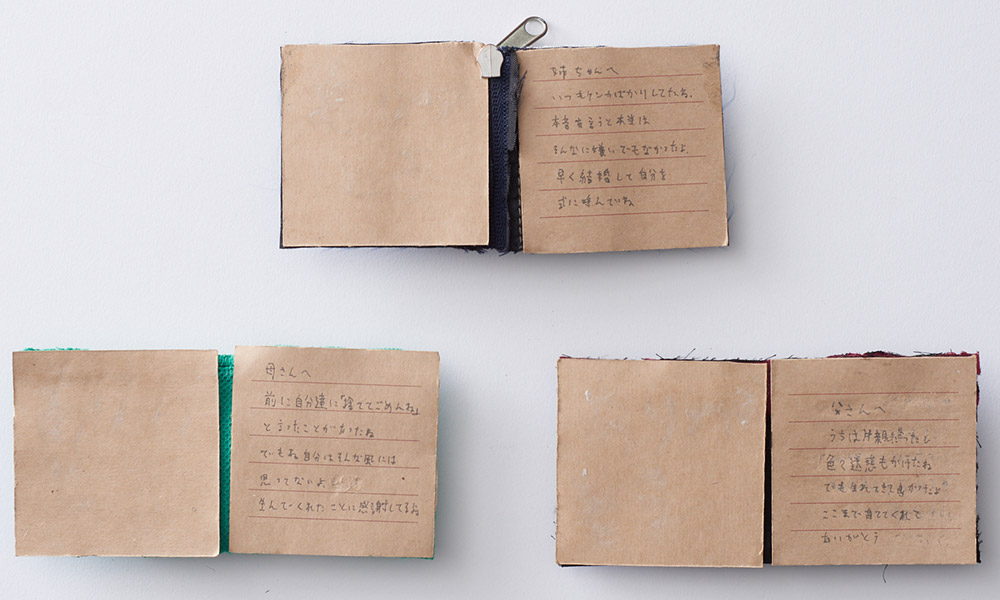 姉ちゃんへ
いつもケンカばかりしてたね。
本音を言うと本当は
そんなに嫌いでもなかったよ。
早く結婚して自分を
式に呼んでね
母さんへ
前に自分達に「捨ててごめんね」
と言ったことがあったね
でもね自分はそんな風には
思ってないよ
生んでくれたことに感謝してるね
父さんへ
うちは片親だったし
色々迷惑もかけたね
でも生れてきて良かったよ
ここまで育ててくれて
ありがとう